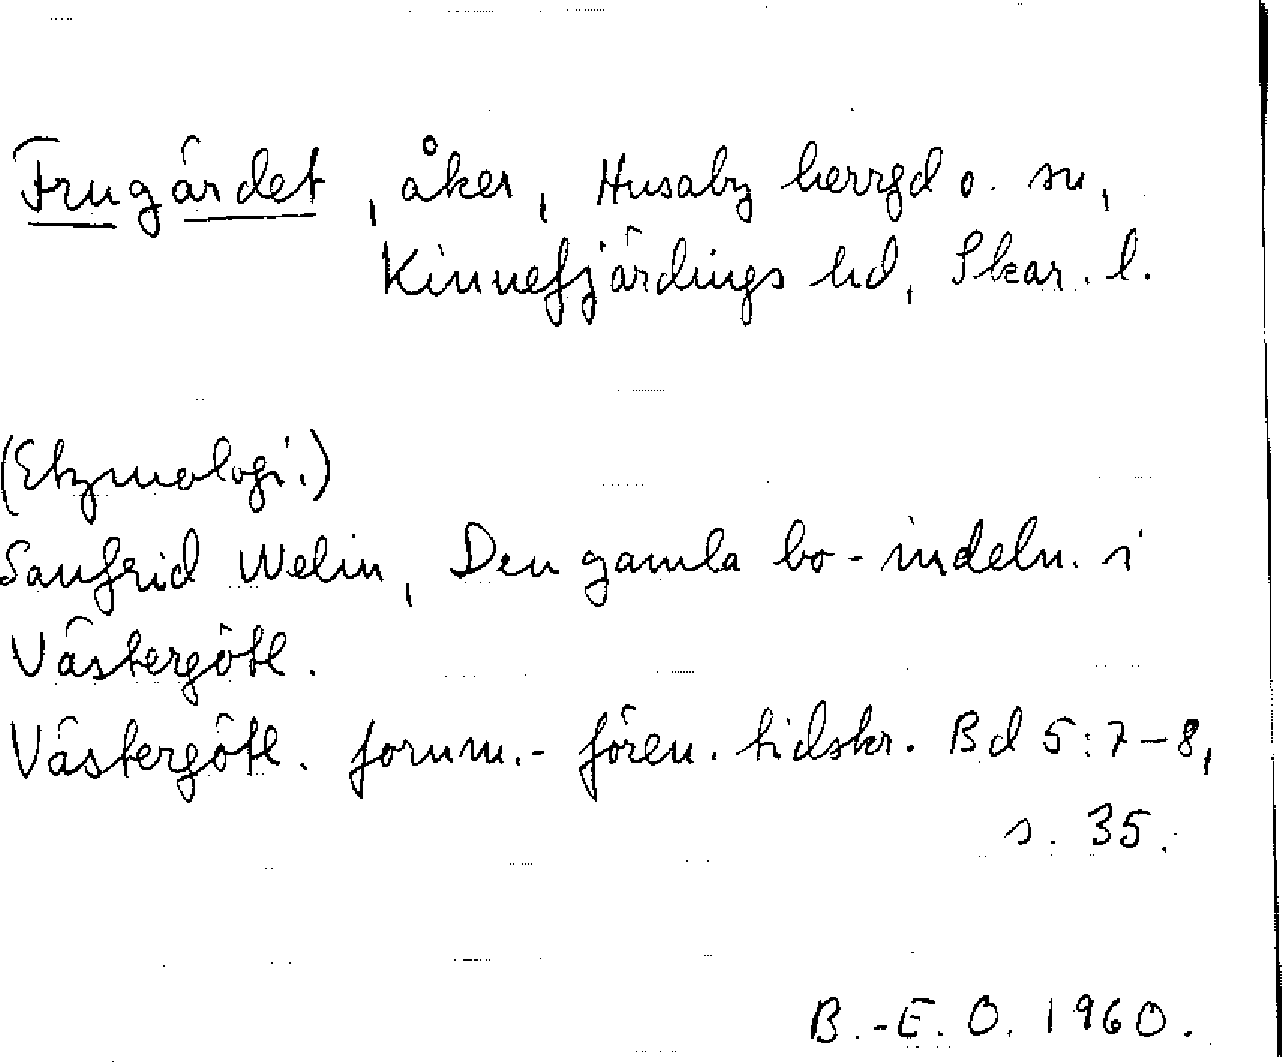 Frugärdet, åker, Husaby herrgd o. sn,
Kinnefjärdings hd, Skar. l.
(Etymologi.)
Sanfrid Welin, Den gamla bo-indeln. i
Västergötl.
Västergötl. fornm.-fören. tidskr. Bd 5:7-8,
s. 35.
B.-E. O. 1960.